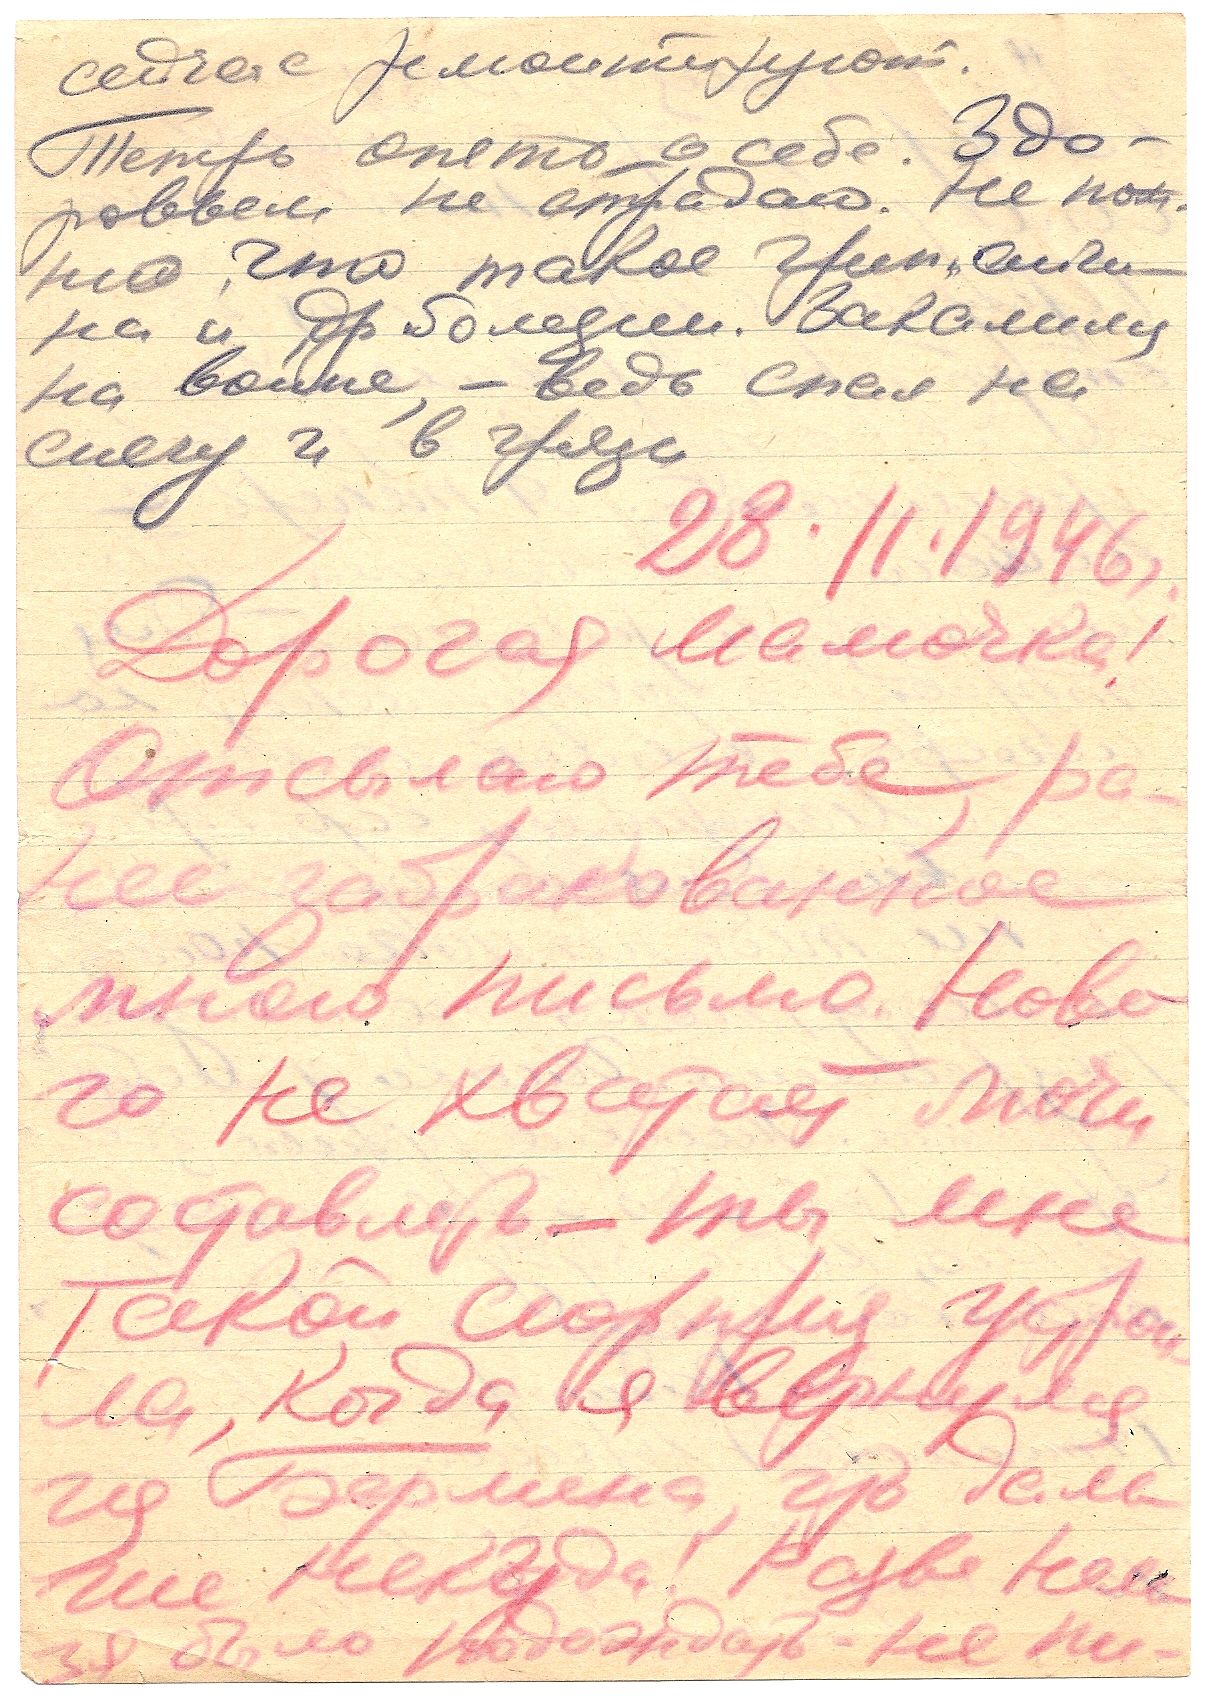 сейчас ремонтируют.
Теперь опять о себе. Здо-
ровьем не страдаю. Не пом-
ню, что такое грипп, анги-
на и др болезни. Закалился
на войне, – ведь спал на
снегу и в грязи
28.11.1946г.
Дорогая мамочка!
Отсылаю тебе, ра-
нее забракованное
мною письмо. Ново
го не хватает мочи
составлять – ты мне
такой сюрприз устрои
ла, когда я вернулся
из Берлина, что даль
ше некуда! Разве нель
зя было подождать – не пи-